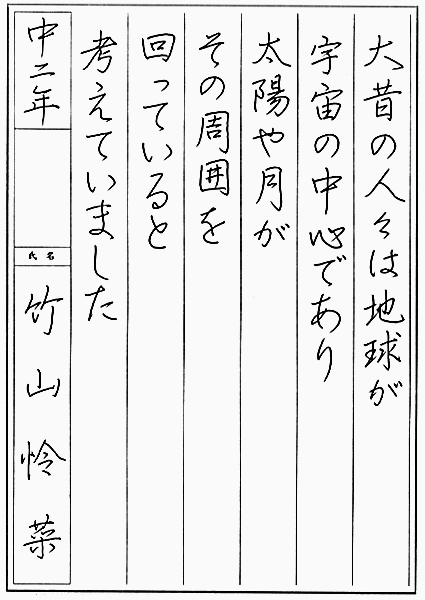 大昔の人々は地球が
宇宙の中心であり
太陽や月が
その周囲を
回っていると
考えていました
中二年
氏名
竹山怜菜